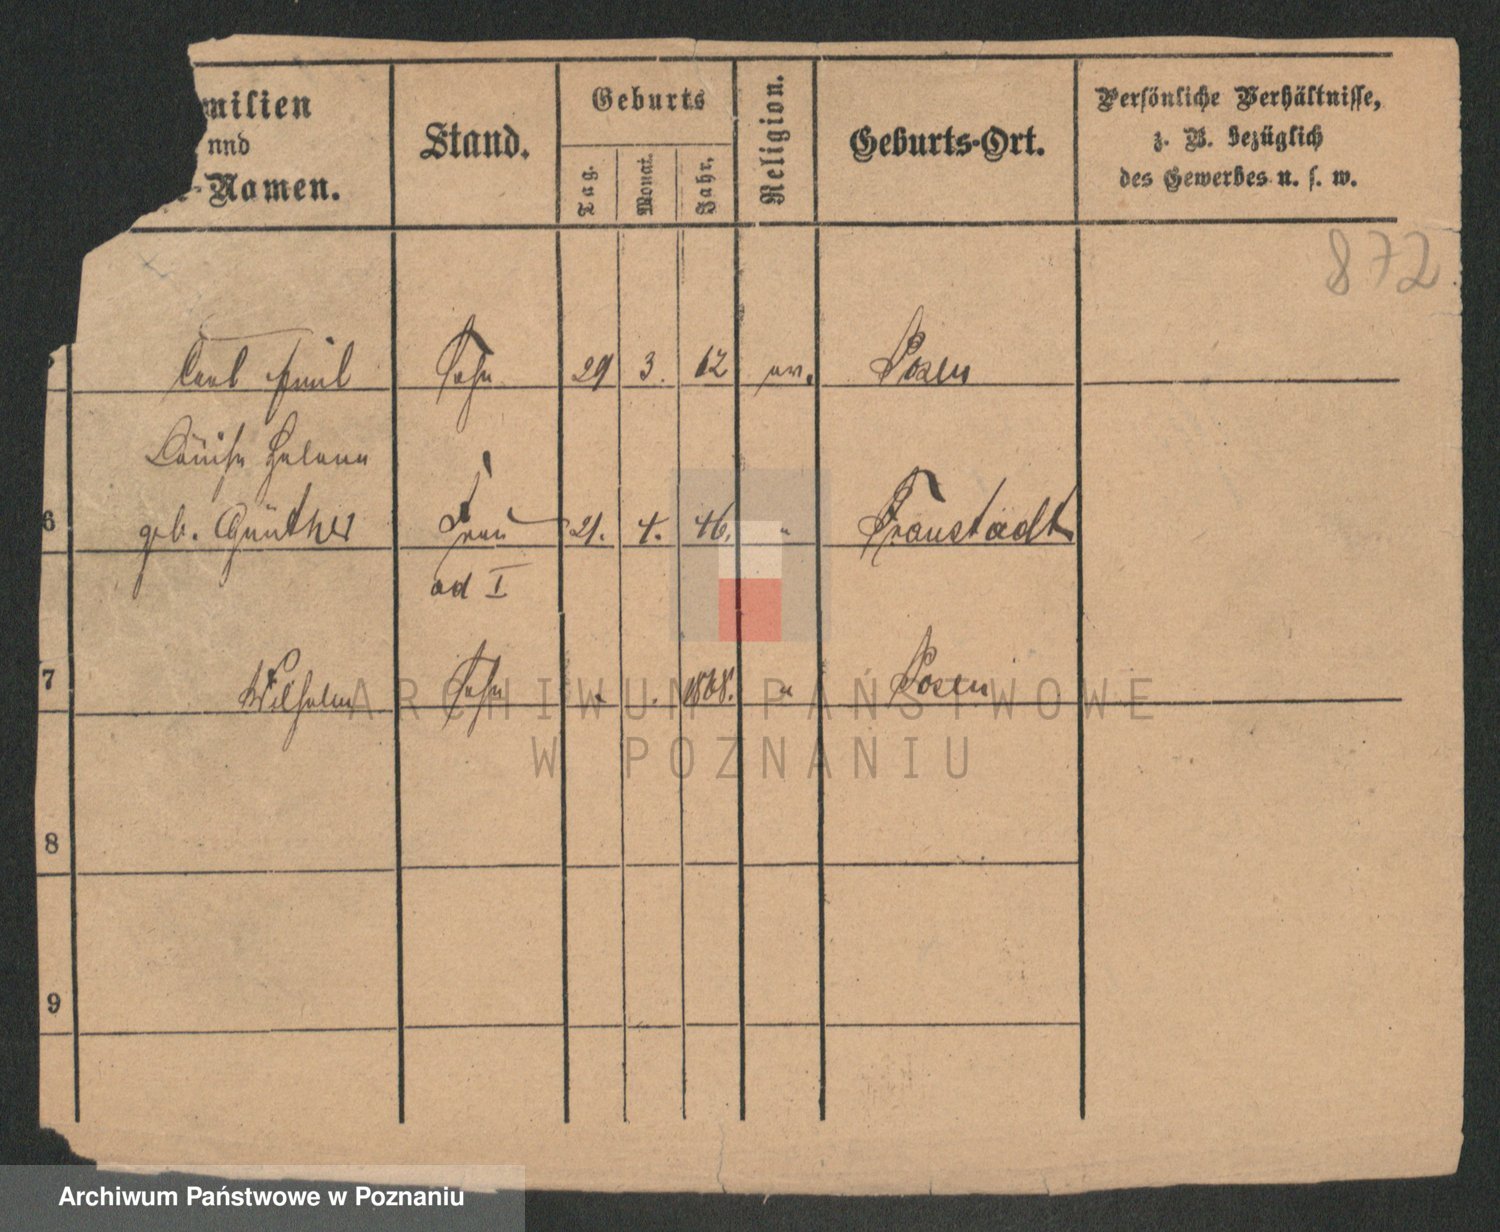 milien
und
-Namen.
Stand.
Geburts
Tag.
Monat.
Jahr.
Religion.
Geburts-Ort.
Persönliche Verhältnisse,
z. B. bezüglich
des Gewerbes u. s. w.
872
Carl Emil Sohn 29 3. 62 ev. Posen
Louise Helene
6 geb. Günther Frau 21. 4. 46. " Fraustadt
ad I
7 Wilhelm Sohn " " 1868. " Posen
8
9
ARCHIWUM PAŃSTWOWE
W POZNANIU
Archiwum Państwowe w Poznaniu